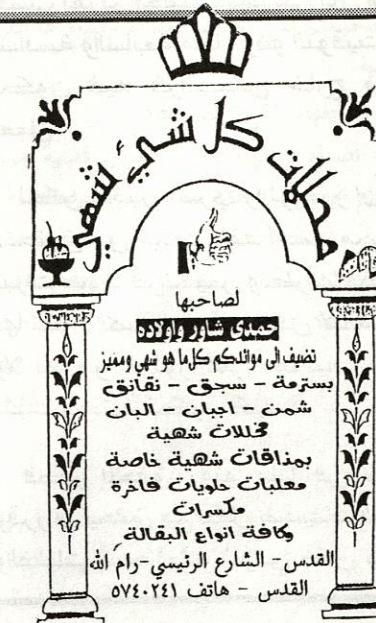 محلات كل شيء شهي
لصاحبها
حمدي شاور واولاده
تضيف الى موائدكم كل ما هو شهي ومميز
بسترمة - سجق - نقانق
شمن - اجبان - البان
مخللات شهية
بمذاقات شهية خاصة
معلبات حلويات فاخرة
مكسرات
وكافة انواع البقالة
القدس - الشارع الرئيسي - رام الله
القدس - هاتف ٥٧٤٠٢٤١